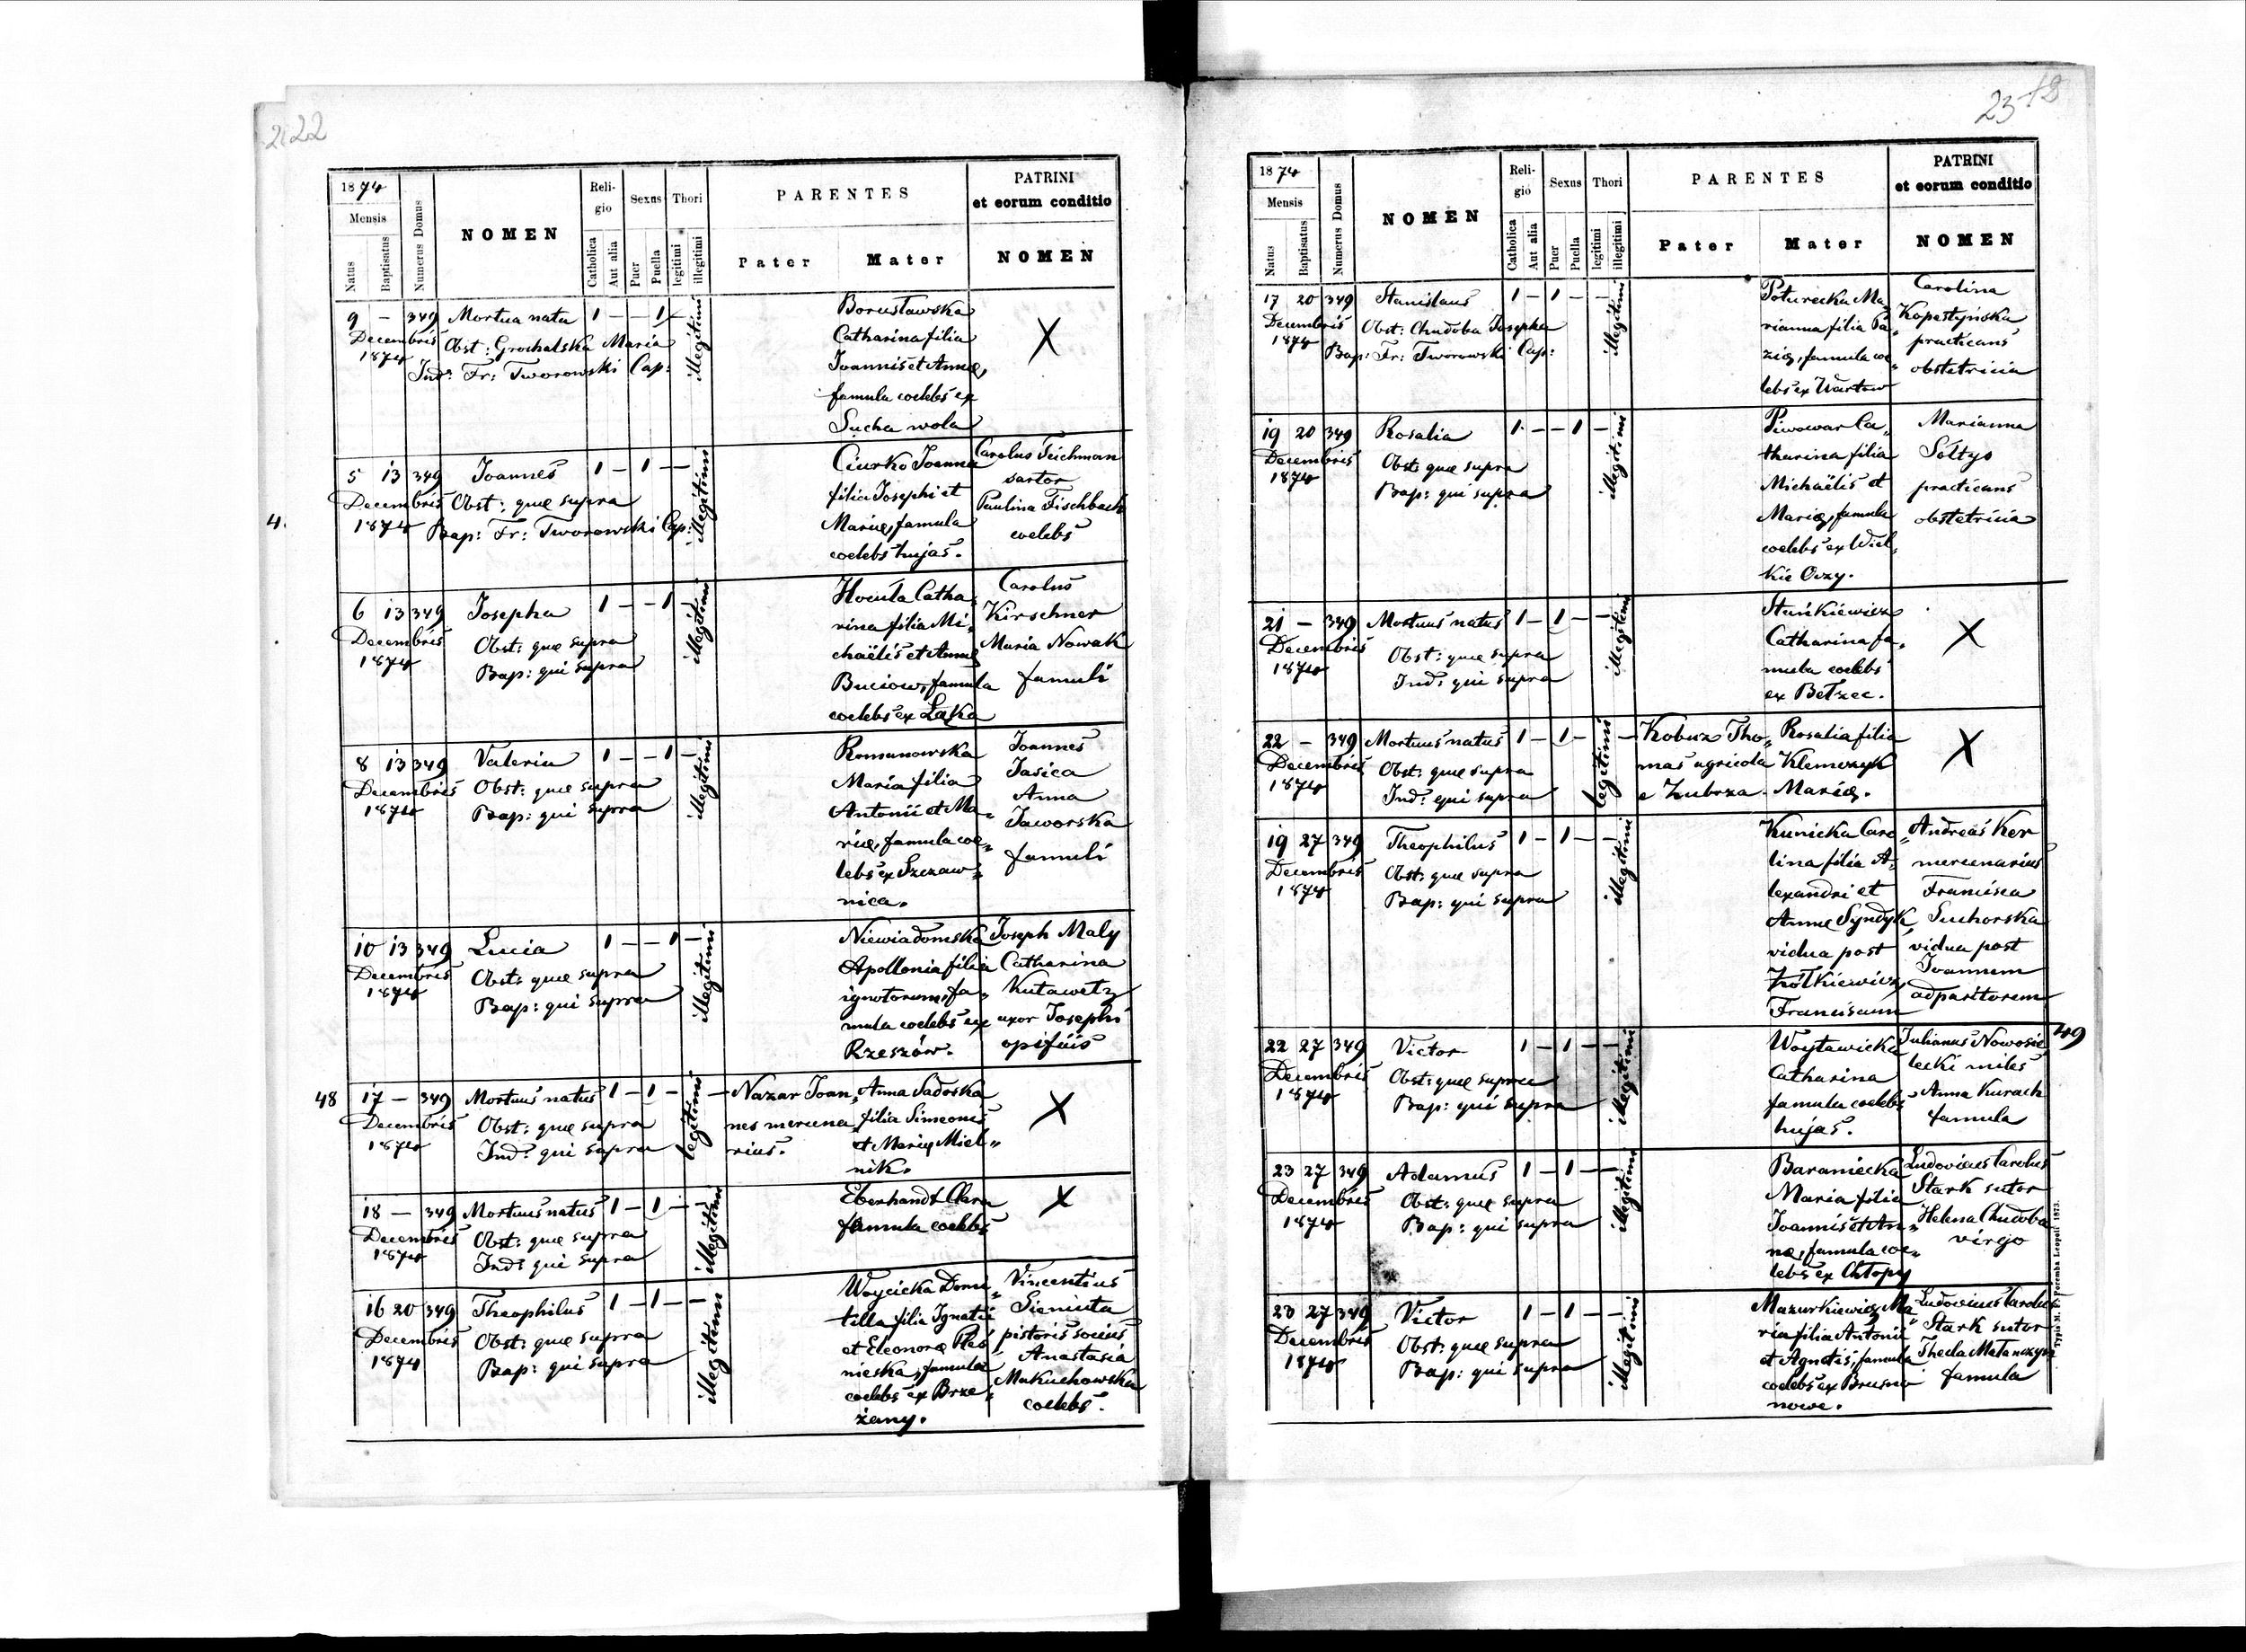 22
1874
Mensis
Natus
Baptisatus
Numerus Domus
NOMEN
Religio
Catholica
Aut alia
Sexus
Puer
Puella
Thori
legitimi
illegitimi
PARENTES
Pater
Mater
PATRINI
et eorum conditio
NOMEN
9 – 349 Mortua nata 1 – – 1 –
Decembris
1874
Obst: Grochalska Maria
Ind: Fr: Tworowski Cap:
illegitimi
Borusławska
Catharina filia
Joannis et Annæ,
famula coelebs ex
Sucha wola
X
4.
5 13 349 Joannes 1 – 1 – –
Decembris
1874
Obst: quæ supra
Bap: Fr: Tworowski Cap:
illegitimi
Ciurko Joanna
filia Josephi et
Mariæ, famula
coelebs hujas.
Carolus Teichman
sartor
Paulina Fischbach
coelebs
6 13 349 Josepha 1 – – 1 –
Decembris
1874
Obst: quæ supra
Bap: qui supra
illegitimi
Catha
rina filia Mi-
chaëlis et Annæ
Buciow, famula
coelebs ex Łąka
Carolus
Kirschner
Maria Nowak
famuli
8 13 349 Valeria 1 – – 1 –
Decembris
1874
Obst: quæ supra
Bap: qui supra
illegitimi
Romanowska
Maria filia
Antonii et Ma-
riæ, famula coe-
lebs ex Szczaw-
nica.
Joannes
Jasica
Anna
Jaworska
famuli
10 13 349 Lucia 1 – – 1 –
Decembris
1874
Obst: quæ supra
Bap: qui supra
illegitimi
Niewiadomska
Apollonia filia
ignotorum, fa-
mula coelebs ex
Rzeszów.
Joseph Maly
Catharina
Kutawetz
uxor Josephi
opificis
48
17 – 349 Mortuus natus 1 – 1 – –
Decembris
1874
Obst: quæ supra
Ind: qui supra
legitimi
Nazar Joan-
nes mercena-
rius.
Anna Sadoska
filia Simeonis
et Mariæ Miel-
nik.
X
18 – 349 Mortuus natus 1 – 1 – –
Decembris
1874
Obst: quæ supra
Ind: qui supra
illegitimi
Eberhandt Clara
famula coelebs
X
16 20 349 Theophilus 1 – 1 – –
Decembris
1874
Obst: quæ supra
Bap: qui supra
illegitimi
Woycicka Domi-
tilla filia Ignatii
et Eleonoræ Ples
nieska, famula
coelebs ex Brze-
żany.
Vincentius
Sieniuta
pistoris socius
Anastasia
Makuchowska
coelebs.
23
1874
Mensis
Natus
Baptisatus
Numerus Domus
NOMEN
Religio
Catholica
Aut alia
Sexus
Puer
Puella
Thori
legitimi
illegitimi
PARENTES
Pater
Mater
PATRINI
et eorum conditio
NOMEN
17 20 349 Stanislaus 1 – 1 – –
Decembris
1874
Obst: Chudoba Josepha
Bap: Fr: Tworowski Cap:
illegitimi
Poturecka Ma-
rianna filia Pa-
ziæ, famula coe-
lebs ex Wartow
Carolina
Kopestyńska
practicans
obstetricia
19 20 349 Rosalia 1 – – 1 –
Decembris
1874
Obst: quæ supra
Bap: qui supra
illegitimi
Piwowar Ca-
tharina filia
Michaëlis et
Mariæ, famula
coelebs ex Wiel-
kie Oczy.
Marianna
Sołtys
practicans
obstetricia
21 – 349 Mortuus natus 1 – 1 – –
Decembris
1874
Obst: quæ supra
Ind: qui supra
illegitimi
Stańkiewicz
Catharina fa-
mula coelebs
ex Bełzec.
X
22 – 349 Mortuus natus 1 – 1 – –
Decembris
1874
Obst: quæ supra
Ind: qui supra
legitimi
Kobuz Tho-
mas agricola
e Zubrza.
Rosalia filia
Klemczyk
Mariæ.
X
19 27 349 Theophilus 1 – 1 – –
Decembris
1874
Obst: quæ supra
Bap: qui supra
illegitimi
Kunicka Caro-
lina filia A-
lexandri et
Annæ Syndyk,
vidua post
Żółkiewicz
Franciscum
Andreas Ker
mercenarius
Francisca
Suchorska
vidua post
Joannem
adparitorem
49
22 27 349 Victor 1 – 1 – –
Decembris
1874
Obst: quæ supra
Bap: qui supra
illegitimi
Woytawicka
Catharina
famula coelebs
hujas.
Julianus Nowosie
lecki miles
Anna Kurach
famula
23 27 349 Adamus 1 – 1 – –
Decembris
1874
Obst: quæ supra
Bap: qui supra
illegitimi
Baraniecka
Maria filia
Joannis et An-
næ, famula coe-
lebs ex Chłopy
Ludovicus Carolus
Stark sutor
Helena Chudoba
virgo
23 27 349 Victor 1 – 1 – –
Decembris
1874
Obst: quæ supra
Bap: qui supra
illegitimi
Mazurkiewicz Ma
ria filia Antonii
et Agnetis, famula
coelebs ex Brusno
nowe.
Ludovicus Carolus
Stark sutor
Thecla
famula
Typis M. F. Poremba Leopoli 1873.